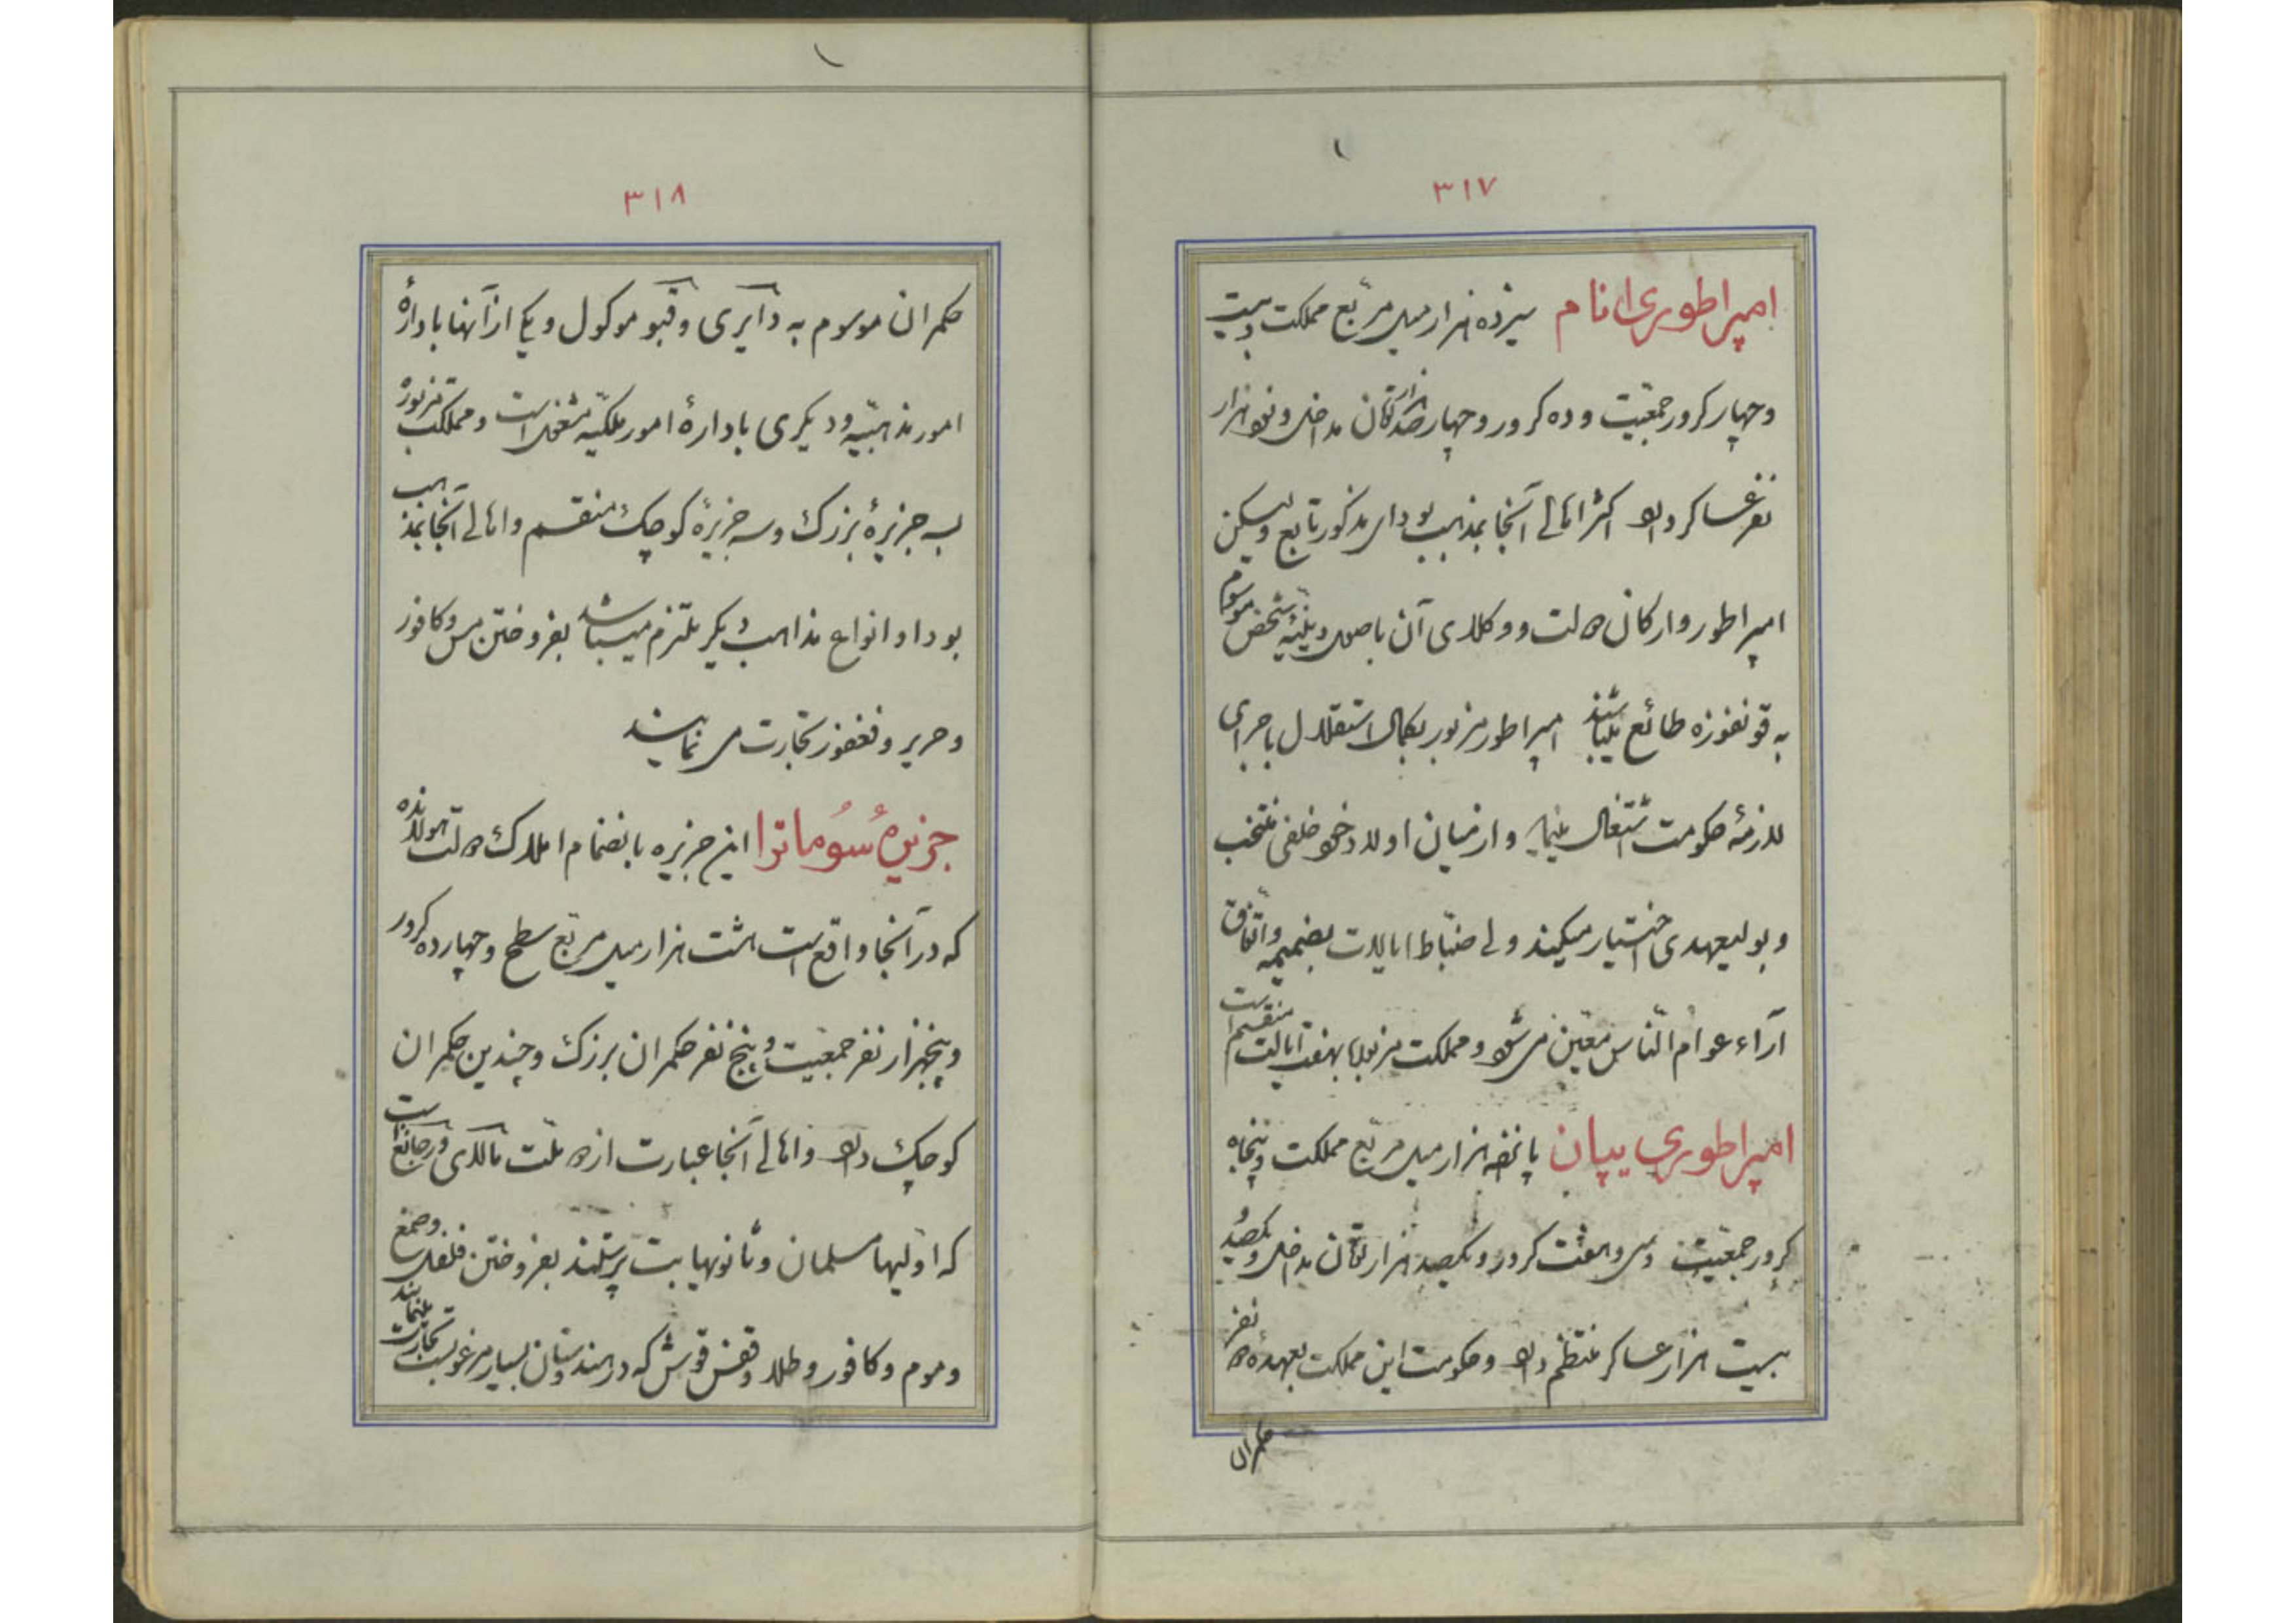 ۳۱۷
امپراطوری انام سیزده هزار میل مربّع مملکت و بیست
و چهار کرور جمعیّت و ده کرور و چهار صد هزار تومان مداخل و نود هزار
نفر عساکر دارد اکثر اهالی آنجا بمذهب بودای مذکور تابع ولیکن
امپراطور و ارکان دولت و وکلای آن باصول دینیّه شخص موسوم
به قونفوزه طائع میباشند امپراطور مزبور بکمال استقلال باجرای
لازمهٔ حکومت اشتغال مینماید و از میان اولاد خود خلفی منتخب
و بولیعهدی اختیار میکند ولی ضبّاط ایالات بضمیمه و اتّفاق
آراء عوام النّاس معیّن می شود و مملکت مزبور بهفت ایالت منقسم است
امپراطوری یپان پانزده هزار میل مربّع مملکت و پنجاه
کرور جمعیّت و سی و هفت کرور و یکصد هزار تومان مداخل و یکصد و
بیست هزار عساکر منتظم دارد و حکومت این مملکت بعهدهٔ دو نفر
حکمران
۳۱۸
حکمران موسوم به دآیری و قبو موکول و یکی از آنها باداره
امور مذهبیّه و دیکری بادارهٔ امور ملکیّه مشغول است و مملکت مزبوره
بسه جزیرهٔ بزرک و سه جزیرهٔ کوچک منقسم و اهالی آنجا بمذهب
بودا و انواع مذاهب دیکر ملتزم میباشد بفروختن مس و کافور
و حریر و فغفور تجارت می نمایند
جزیرهٔ سُوماترا این جزیره بانضمام املاک دولت هولاندّه
که در آنجا واقع است هشت هزار میل مربّع سطح و چهارده کرور
و پنجهزار نفر جمعیّت و پنج نفر حکمران بزرک و چندین حکمران
کوچک دارد و اهالی آنجا عبارت از دو ملّت مالآی و است
که اوّلیها مسلمان و ثانویها بت پرستند بفروختن فلفل و صمغ
و موم و کافور و طلا و قفس قوش که در هندوستان بسیار مرغوبست تجارت مینمایند